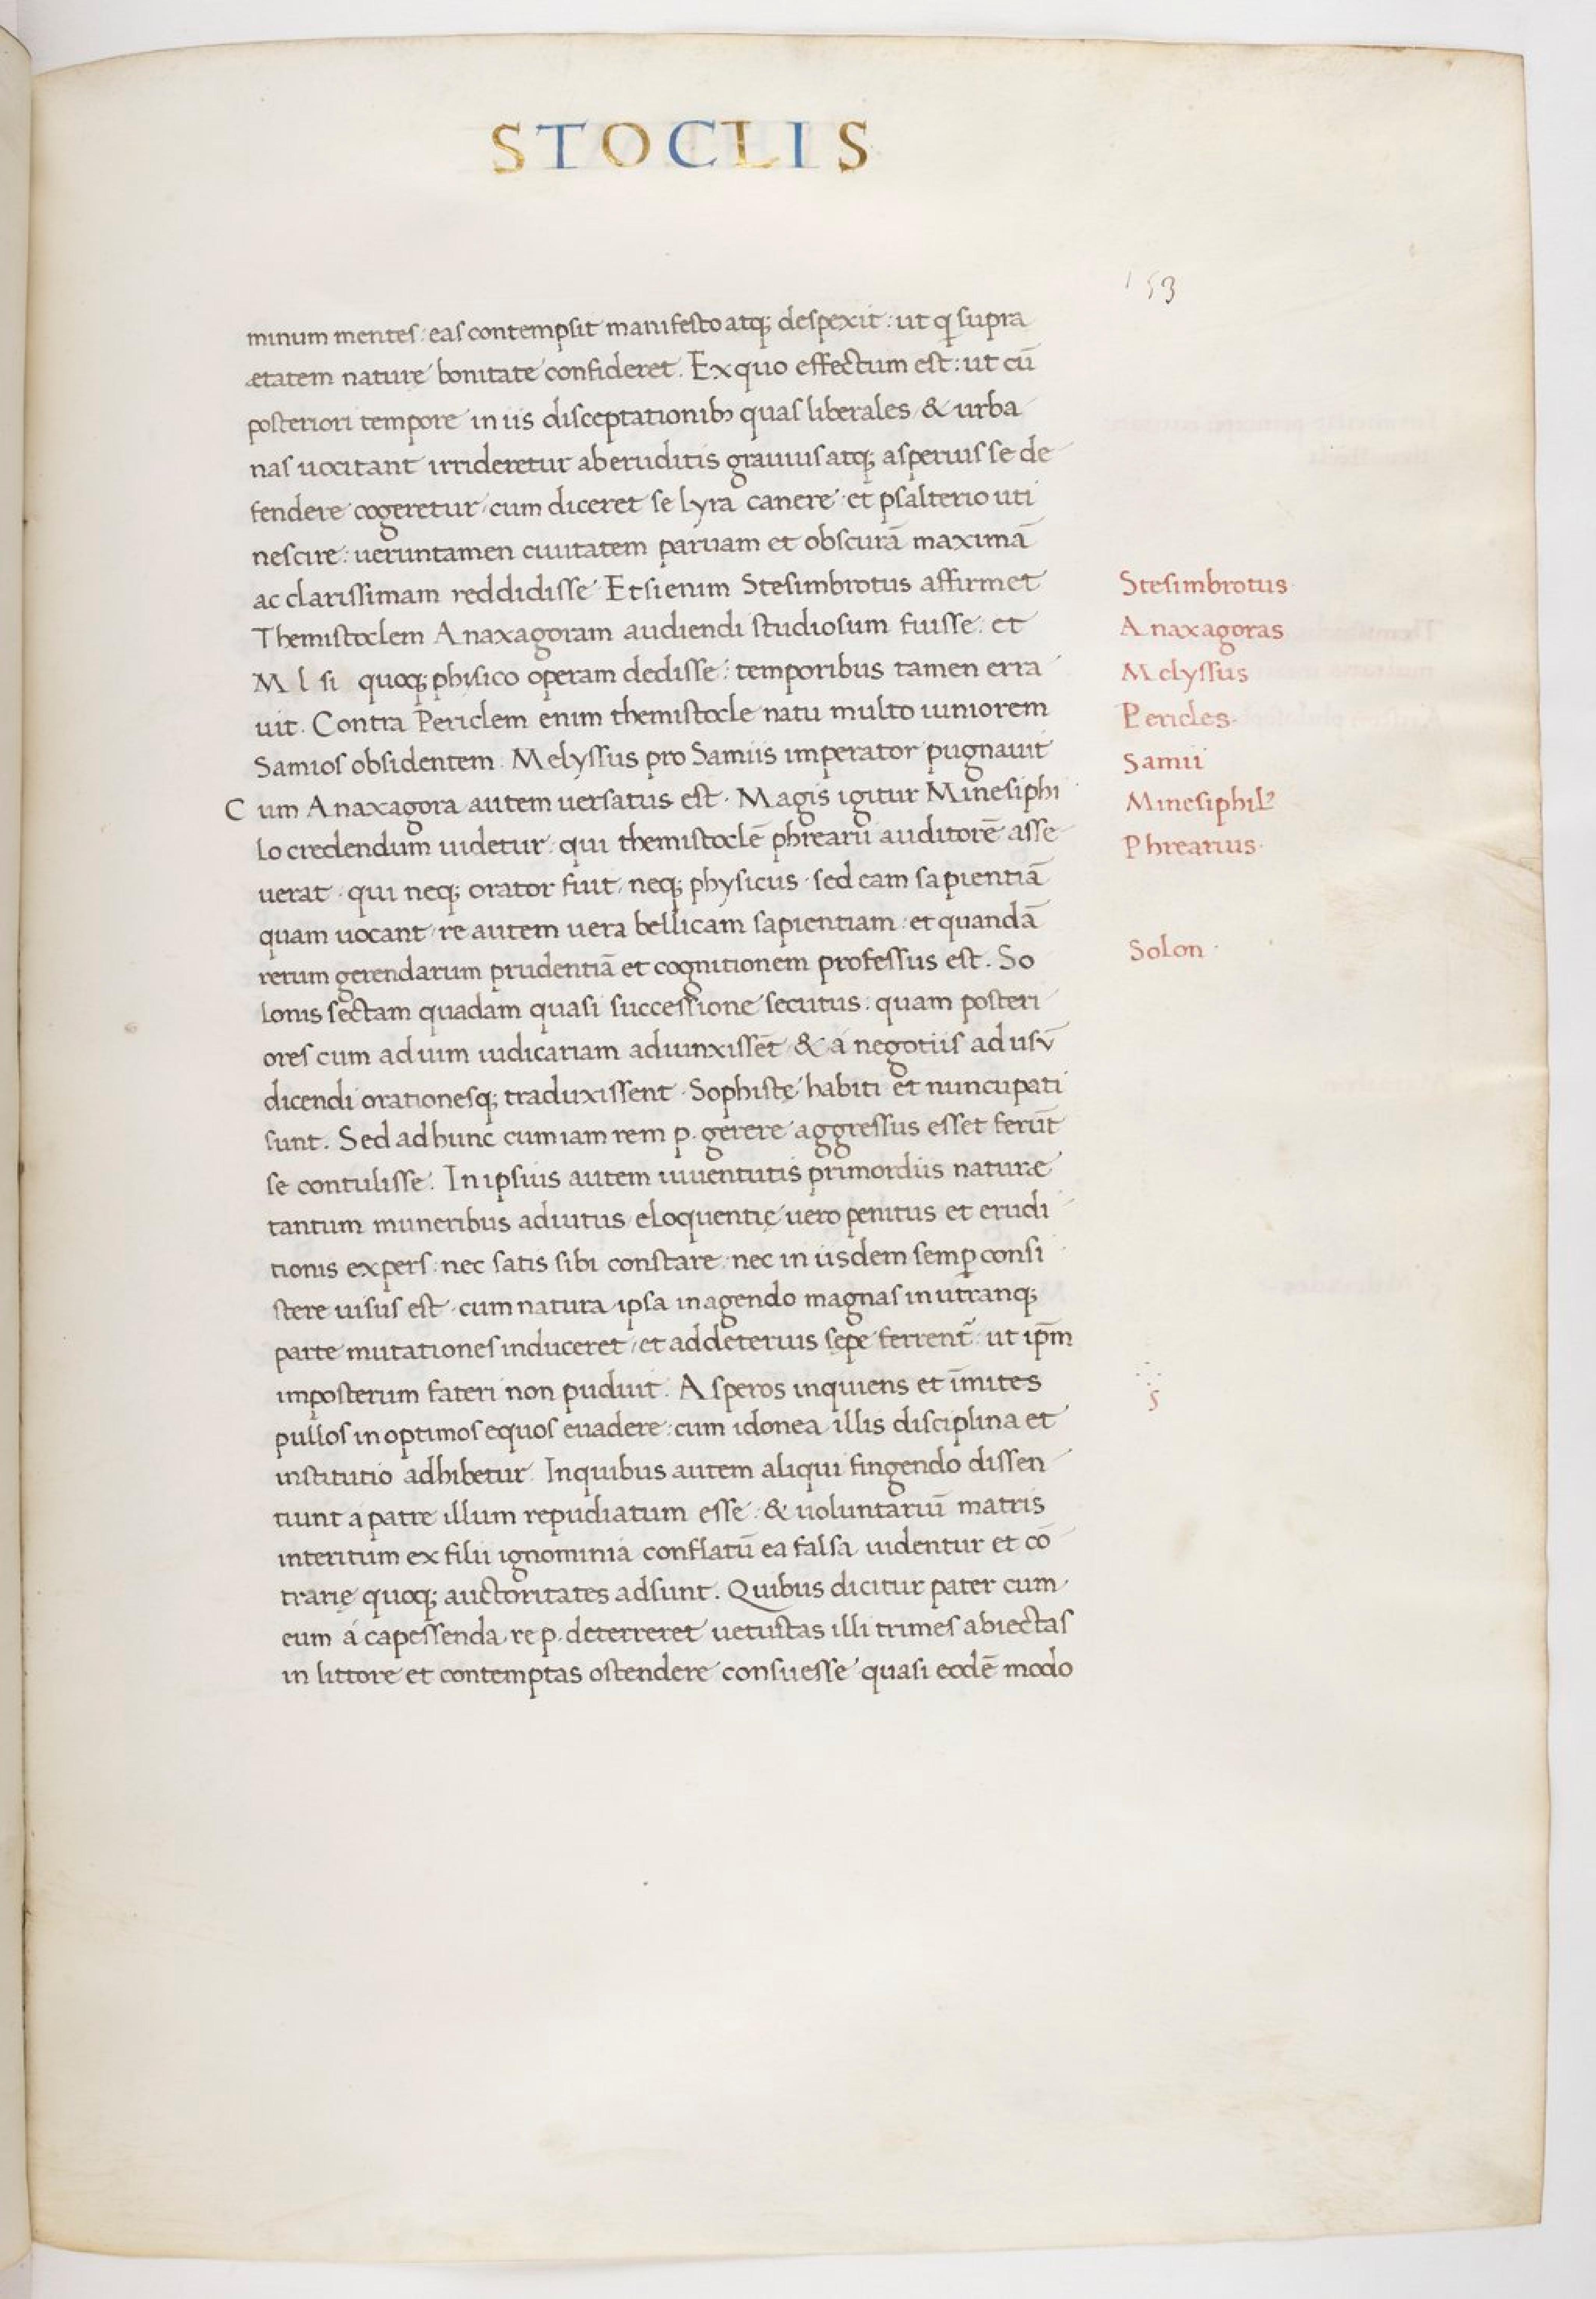 STOCLIS
153
minum mentes: eas contempsit manifesto atq; despexit: ut q̄ supra
ætatem nature bonitate confideret. Ex quo effectum est: ut cū
posteriori tempore in iis disceptationibꝫ quas liberales & urba
nas uocitant irrideretur ab eruditis grauius atq; asperius se de
fendere cogeretur, cum diceret se lyra canere et psalterio uti
nescire: ueruntamen ciuitatem paruam et obscurā maximā
ac clarissimam reddidisse Etsi enim Stesimbrotus affirmet
Stesimbrotus
Themistoclem Anaxagoram audiendi studiosum fuisse: et
Anaxagoras
M l si quoq; phisico operam dedisse: temporibus tamen erra
Melyssus
uit. Contra Periclem enim themistocle natu multo iuniorem
Pericles.
Samios obsidentem. Melyssus pro Samiis imperator pugnauit
Samii
Cum Anaxagora autem uersatus est. Magis igitur Minesiphi
Minesiphilꝰ
lo credendum uidetur. qui themistoclē phrearū auditorē asse
Phrearius.
uerat. qui neq; orator fuit, neq; physicus. sed eam sapientiā
quam uocant, re autem uera bellicam sapientiam: et quandā
rerum gerendarum prudentiā et cognitionem professus est. So
Solon.
lonis sectam quadam quasi successione secutus: quam posteri
ores cum ad uim iudicariam adiunxissēt & a negotiis ad usū
dicendi orationesq; traduxissent. Sophistę habiti et nuncupati
sunt. Sed ad hunc cum iam rem p. gerere aggressus esset ferūt
se contulisse. In ipsius autem iuuentutis primordiis naturæ
tantum muneribus adiutus, eloquentię uero penitus et erudi
tionis expers: nec satis sibi constare: nec in iisdem semp̱ consi
stere uisus est. cum natura ipsa in agendo magnas in utranq;
parte mutationes induceret, et ad deterius sepe ferrent᷑: ut ip̄m
imposterum fateri non puduit. Asperos inquiens et īmites
pullos in optimos equos euadere: cum idonea illis disciplina et
institutio adhibetur. In quibus autem aliqui fingendo dissen
tiunt a patre illum repudiatum esse: & uoluntariū matris
interitum ex filii ignominia conflatū ea falsa uidentur et cō
trarię quoq; auctoritates adsunt. Quibus dicitur pater cum
eum á capessenda re p. deterreret uetustas illi trimes abiectas
in littore et contemptas ostendere consuesse quasi eodē modo